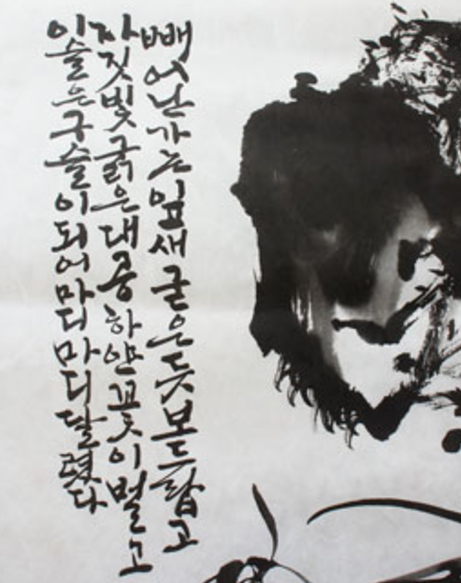 빼어난가는잎새굳은듯보드랍고
자짓빛굵은대공하얀꽃이벌고
이슬은구슬이되어마디마디달렸다